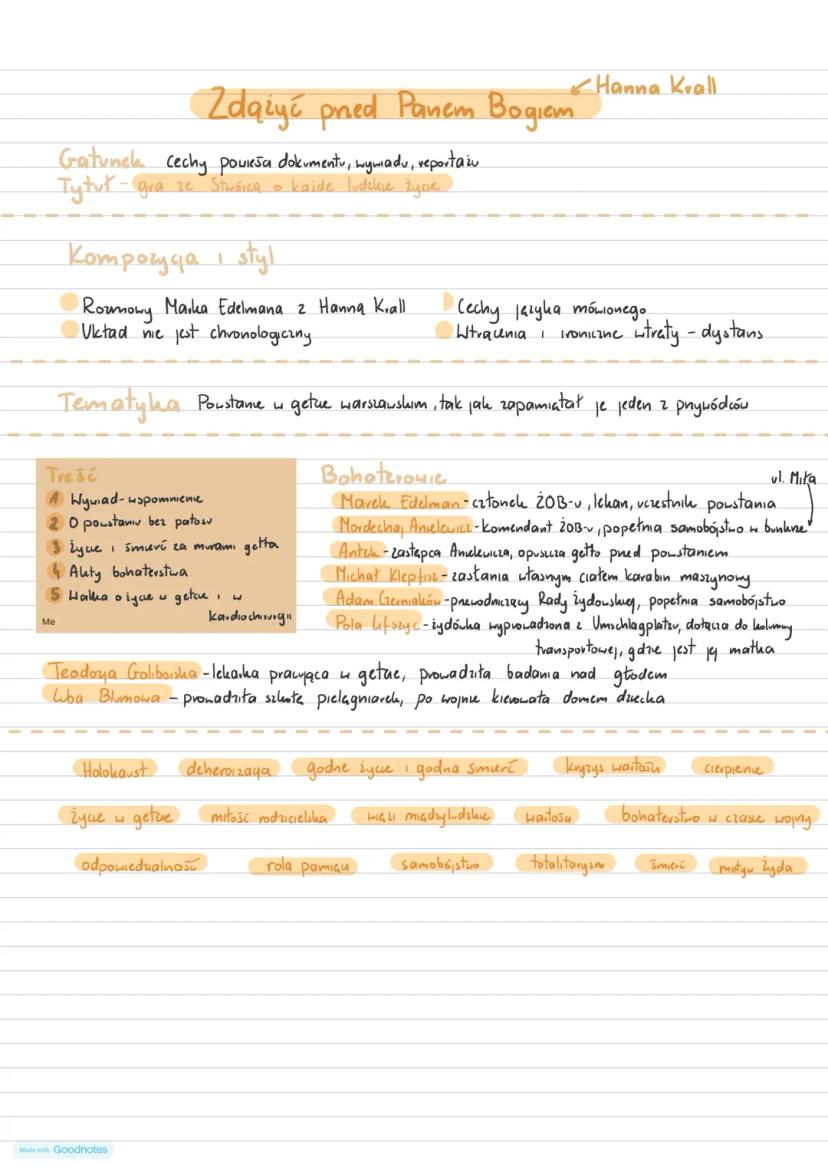 Zdążyć przed Panem Bogiem
Hanna Krall
Gatunek cechy powieści dokumentu, wywiadu, reportażu
Tytuł - gra ze Stwórcą o każde ludzkie życie
Kompozycja i styl
Rozmowy Marka Edelmana z Hanną Krall
Układ nie jest chronologiczny
Cechy języka mówionego
Wtrącenia i ironiczne wtręty - dystans
Tematyka Powstanie w getcie warszawskim, tak jak zapamiętał je jeden z przywódców
Treść
1 Wywiad - wspomnienie
2 O powstaniu bez patosu
3 Życie i śmierć za murami getta
4 Akty bohaterstwa
5 Walka o życie w getcie i w
kardiochirurgii
Me
Bohaterowie
ul. Miła
Marek Edelman - członek ŻOB-u, lekarz, uczestnik powstania
Mordechaj Anielewicz - komendant ŻOB-u, popełnia samobójstwo w bunkrze
Antek - zastępca Anielewicza, opuszcza getto przed powstaniem
Michał Klepfisz - zasłania własnym ciałem karabin maszynowy
Adam Czerniaków - przewodniczący Rady Żydowskiej, popełnia samobójstwo
Pola Lifszyc - żydówka wyprowadzona z Umschlagplatzu, dołącza do kolumny
transportowej, gdzie jest jej matka
Teodozja Goliborska - lekarka pracująca w getcie, prowadziła badania nad głodem
Luba Blumowa - prowadziła szkołę pielęgniarek, po wojnie kierowała domem dziecka
Holokaust deheroizacja godne życie i godna śmierć kryzys wartości cierpienie
życie w getcie miłość rodzicielska więzi międzyludzkie wartości bohaterstwo w czasie wojny
odpowiedzialność rola pamięci samobójstwo totalitaryzm śmierć motyw Żyda
Made with Goodnotes